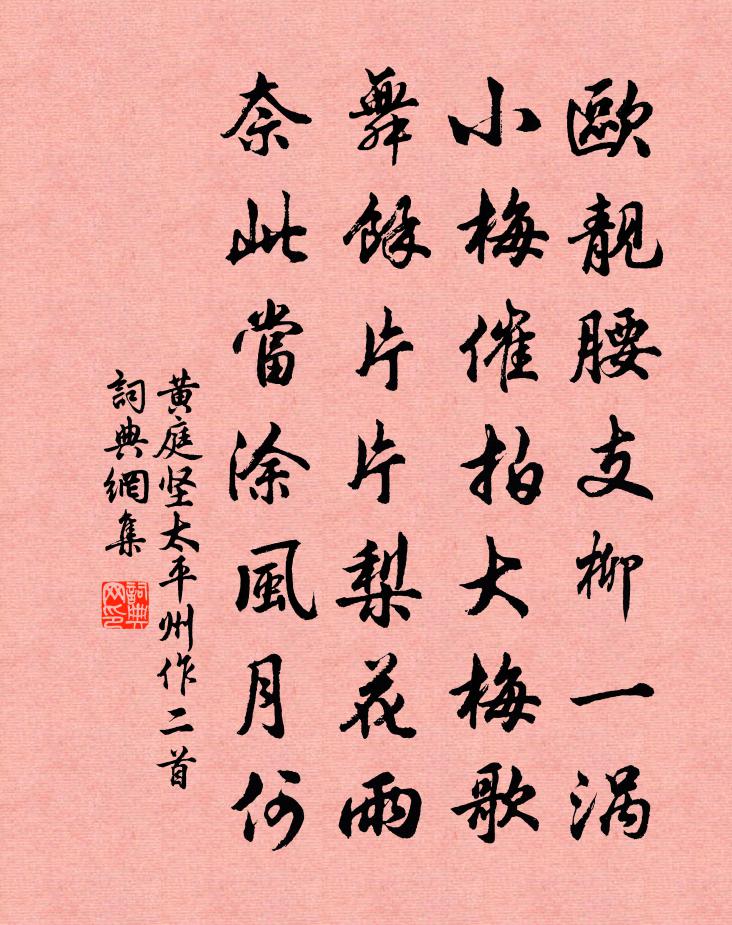 歐靚腰支柳一涡
小梅催拍大梅歌
舞餘片片梨花雨
奈此當涂風月何
黄庭坚太平州作二首
詞典網集
詞典網印